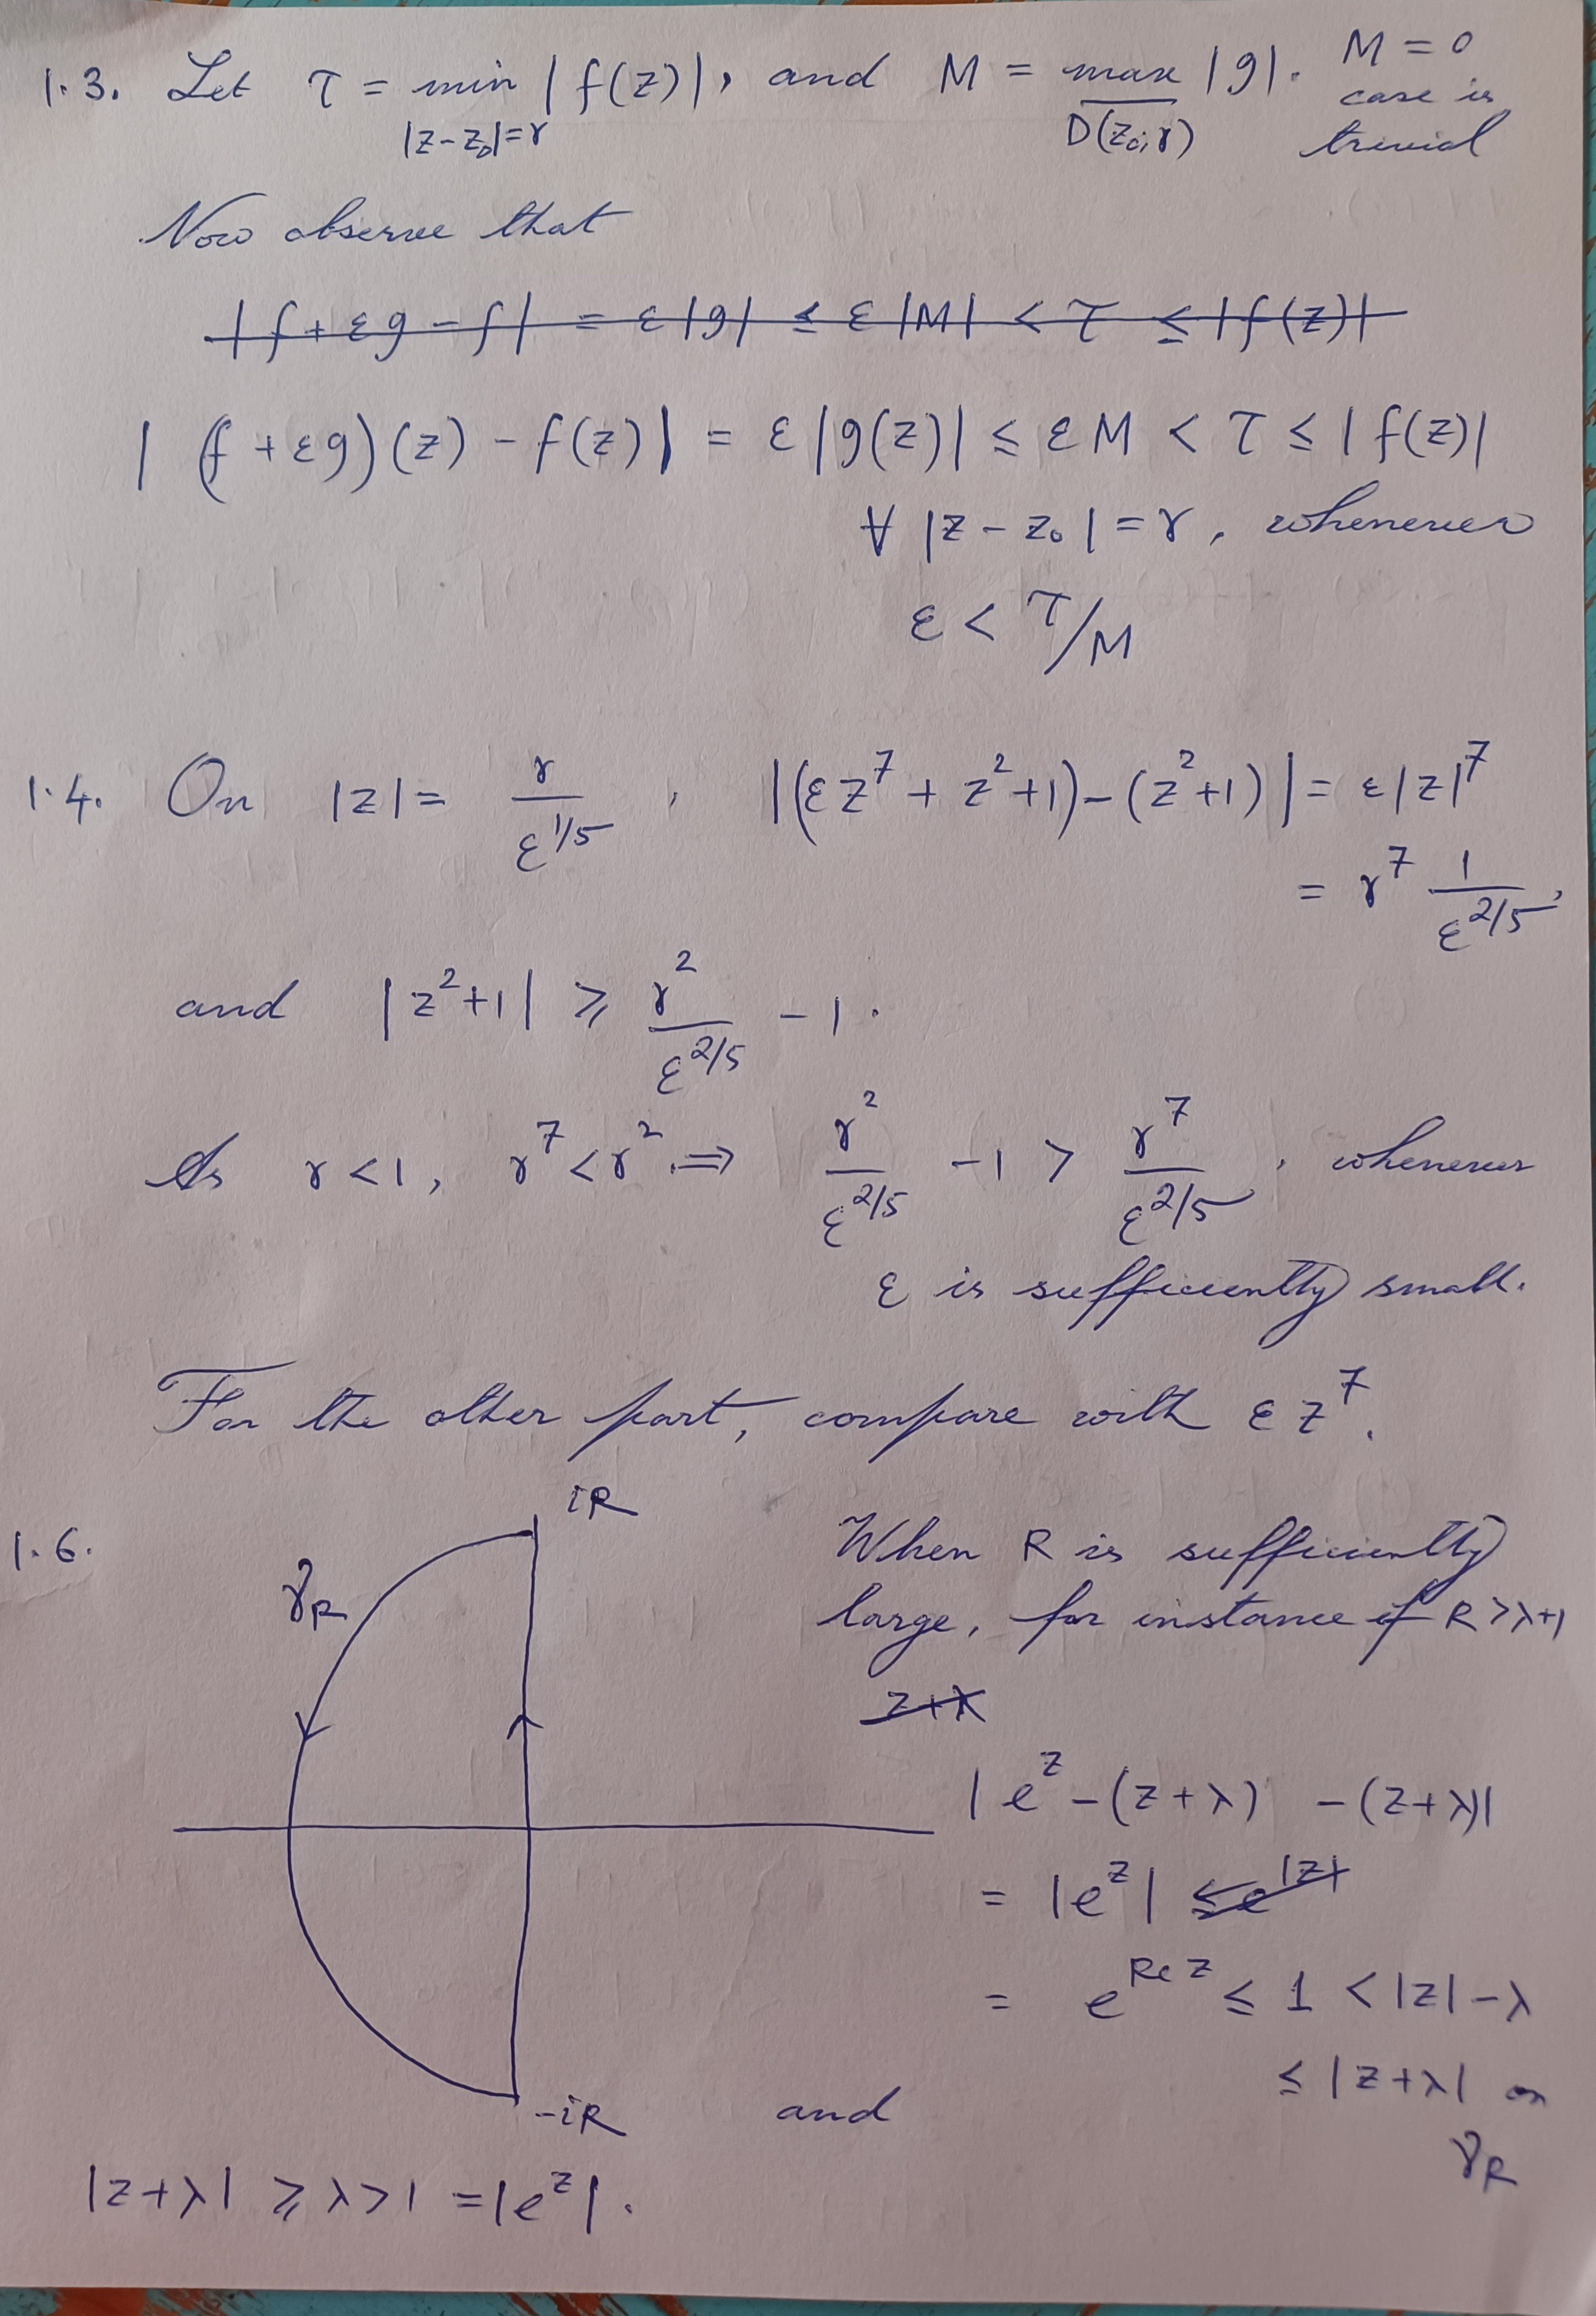 1.3. Let τ = min |f(z)|, and M = max |g|. M = 0
|z-z₀|=r D(z₀;r) case is
trivial
Now observe that
|f+εg-f| = ε|g| ≤ ε|M| < τ ≤ |f(z)|
|(f+εg)(z) - f(z)| = ε|g(z)| ≤ εM < τ ≤ |f(z)|
∀ |z-z₀|=r, whenever
ε < τ/M
1.4. On |z| = r/ε^{1/5}, |(εz⁷+z²+1)-(z²+1)| = ε|z|⁷
= r⁷ 1/ε^{2/5},
and |z²+1| ≥ r²/ε^{2/5} - 1.
As r<1, r⁷<r² ⇒ r²/ε^{2/5} - 1 > r⁷/ε^{2/5}, whenever
ε is sufficiently small.
For the other part, compare with εz⁷.
1.6.
iR
γ_R
-iR
When R is sufficiently
large, for instance if R>λ+1
z+λ
|e^z-(z+λ) -(z+λ)|
= |e^z| ≤ e^{|z|}
= e^{Re z} ≤ 1 < |z|-λ
≤ |z+λ| on
γ_R
and
|z+λ| ≥ λ>1 = |e^z|.